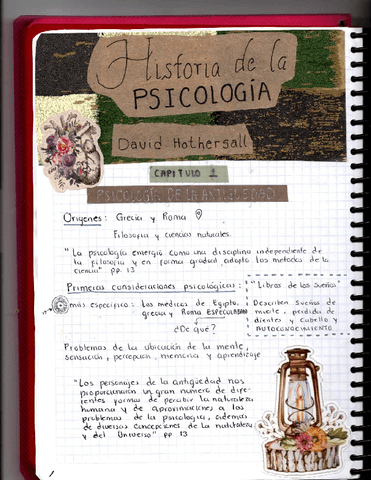 Historia de la
PSICOLOGÍA
David Hothersall
CAPITULO 1
PSICOLOGÍA DE LA ANTIGÜEDAD
Orígenes: Grecia y Roma
Filosofía y ciencias naturales.
"La psicología emergió como una disciplina independiente de
la filosofía y en forma gradual adopto los metodos de la
ciencia" pp. 13
Primeras consideraciones psicológicas:
más específico: Los médicos de Egipto,
grecia y Roma ESPECULABAN
¿De qué?
"Libros de los sueños"
Describen sueños de
muerte, perdida de
dientes y cabello y
AUTOCONOCIMIENTO
Problemas de la ubicación de la mente,
sensación, percepción, memoria y aprendizaje
"Los personajes de la antigüedad nos
proporcionaron un gran número de dife-
rentes formas de percibir la naturaleza
humana y de aproximaciones a los
problemas de la psicología, además
de diversas concepciones de la naturaleza
y del Universo" pp 13